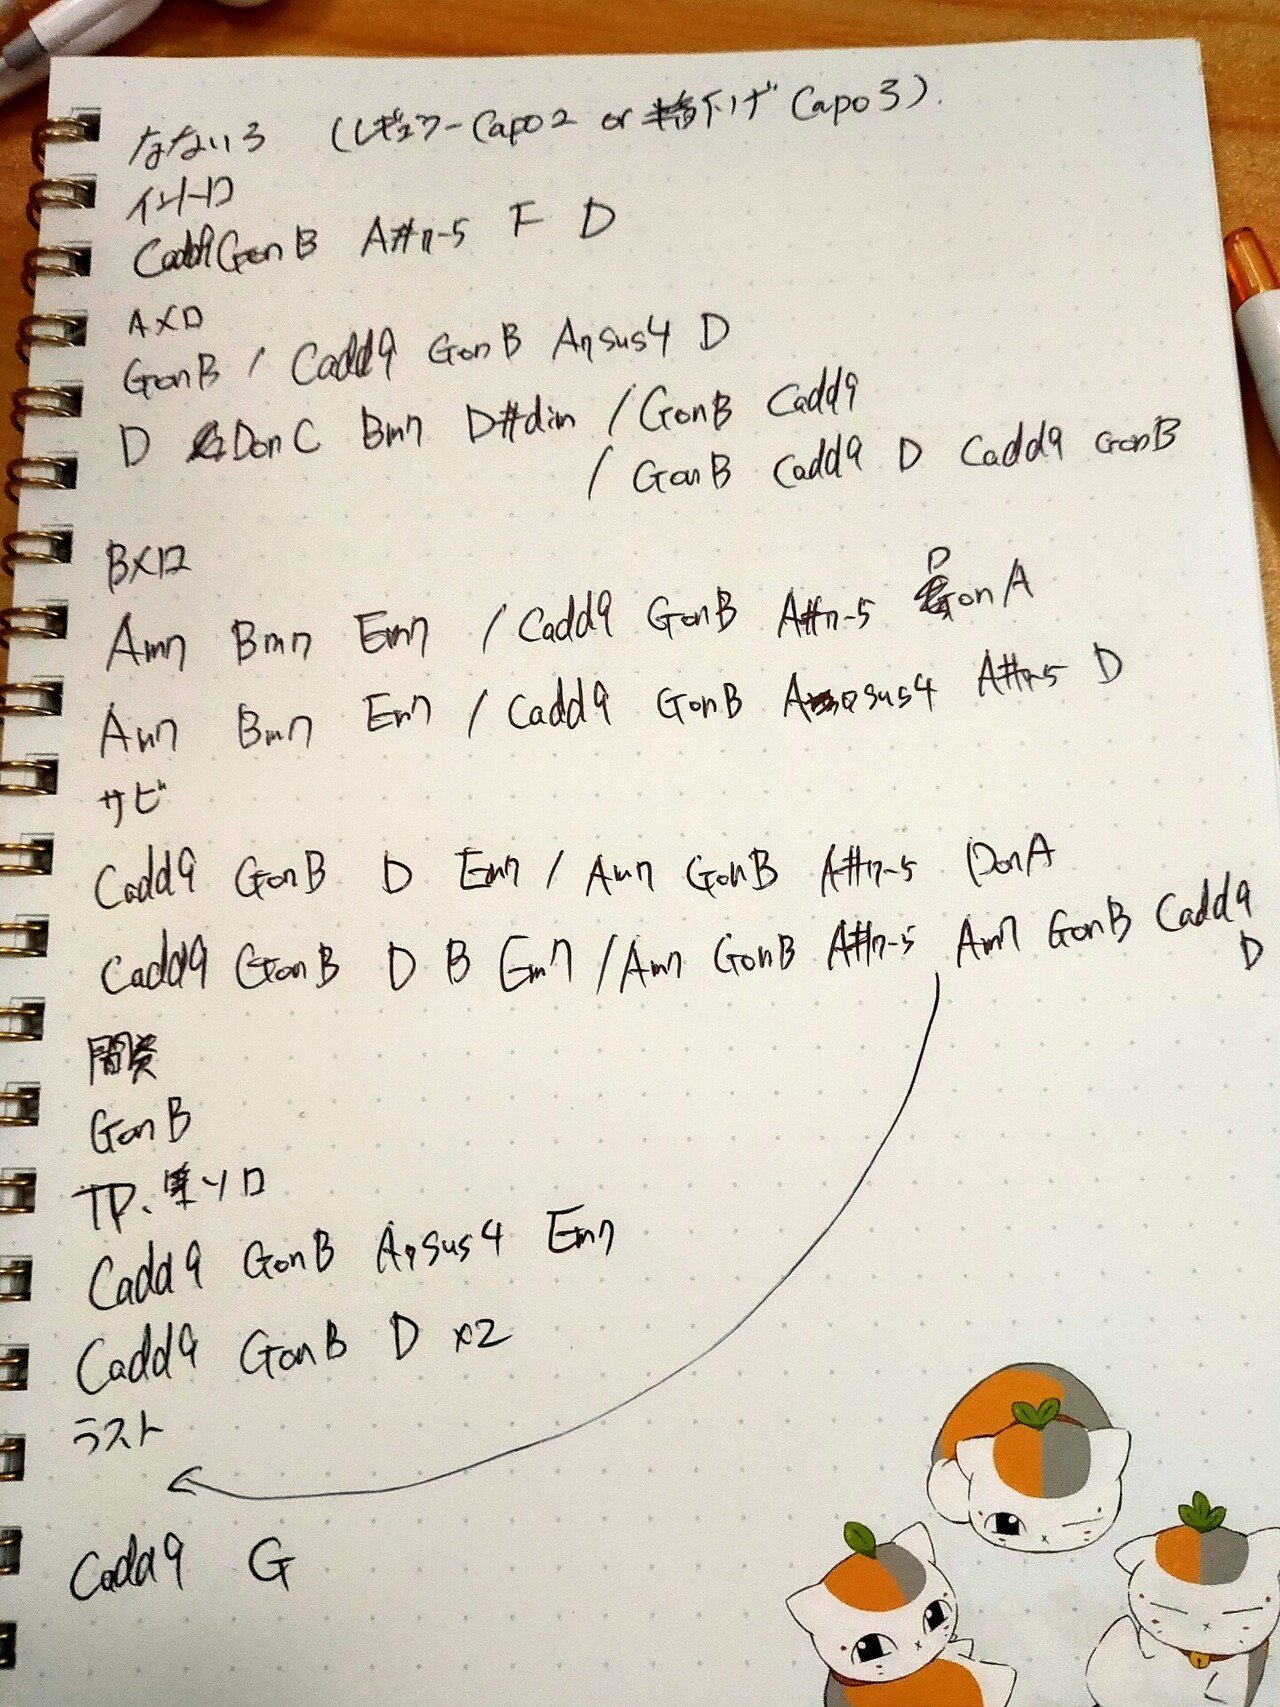 なないろ (レギュラーCapo2 or 半音下げ Capo3).
イントロ
Cadd9 GonB A#7-5 F D
Aメロ
GonB / Cadd9 GonB A7sus4 D
D DonC Bm7 D#dim / GonB Cadd9
/ GonB Cadd9 D Cadd9 GonB
Bメロ
Am7 Bm7 Em7 / Cadd9 GonB A#7-5 DonA
Am7 Bm7 Em7 / Cadd9 GonB A7sus4 A#7-5 D
サビ
Cadd9 GonB D Em7 / Am7 GonB A#7-5 DonA
Cadd9 GonB D B Em7 / Am7 GonB A#7-5 Am7 GonB Cadd9
D
間奏
GonB
TP、ソロ
Cadd9 GonB A7sus4 Em7
Cadd9 GonB D x2
ラスト
Cadd9 G